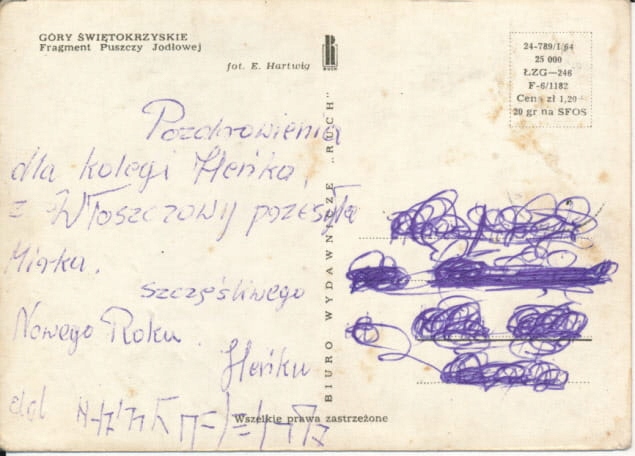 GÓRY ŚWIĘTOKRZYSKIE
Fragment Puszczy Jodłowej
fot. E. Hartwig
RUCH
24-789/I/64
25 000
ŁZG—246
F-6/1182
Cena zł 1,20
20 gr na SFOS
Pozdrowienia
dla kolegi Heńka,
z Włoszczowy przesyła
Mirka.
szczęśliwego
Nowego Roku
Heńku
BIURO WYDAWNICZE „RUCH"
Wszelkie prawa zastrzeżone